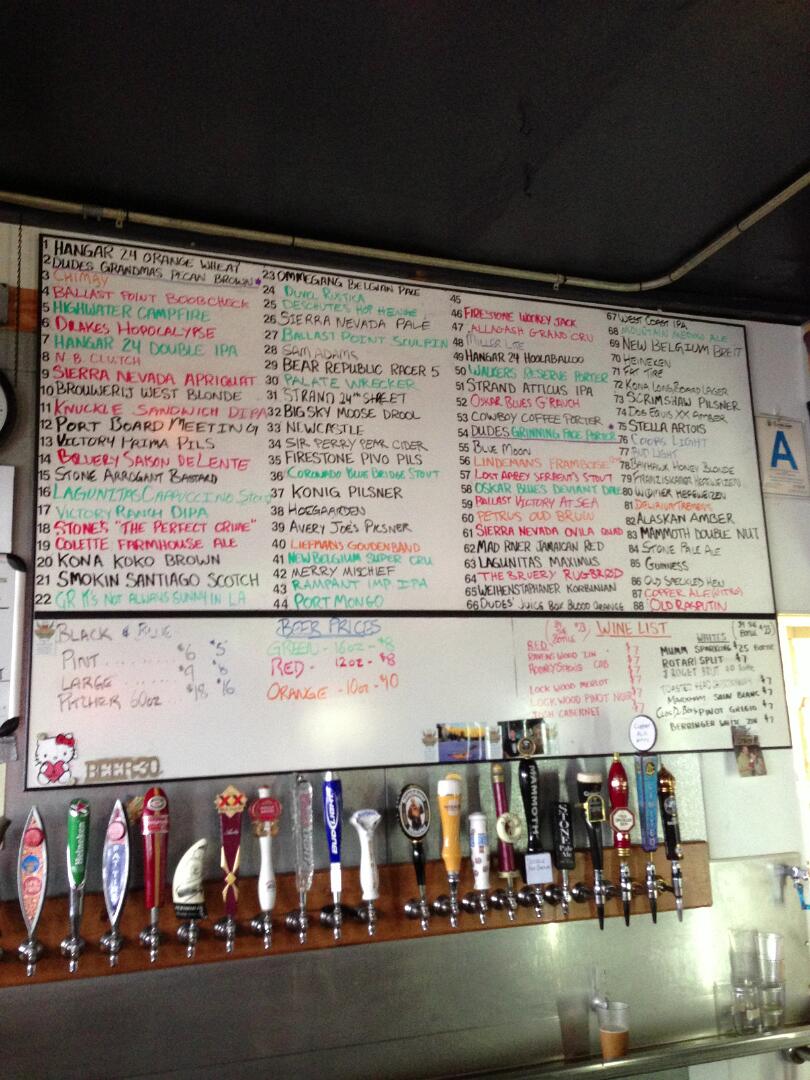 1 HANGAR 24 ORANGE WHEAT
2 DUDES GRANDMAS PECAN BROWN
3 CHIMAY
4 BALLAST POINT BOOBCHECK
5 HIGHWATER CAMPFIRE
6 DRAKES HOPOCALYPSE
7 HANGAR 24 DOUBLE IPA
8 N.B. CLUTCH
9 SIERRA NEVADA APRIQUAT
10 BROUWERIJ WEST BLONDE
11 KNUCKLE SANDWICH DIPA
12 PORT BOARD MEETING
13 VICTORY PRIMA PILS
14 BRUERY SAISON DE LENTE
15 STONE ARROGANT BASTARD
16 LAGUNITAS CAPPUCCINO STOUT
17 VICTORY RANCH DIPA
18 STONE'S "THE PERFECT CRIME"
19 COLETTE FARMHOUSE ALE
20 KONA KOKO BROWN
21 SMOKIN SANTIAGO SCOTCH
22 GR IT'S NOT ALWAYS SUNNY IN LA
23 OMMEGANG BELGIAN PALE
24 DUVEL RUSTICA
25 DESCHUTES HOP HENGE
26 SIERRA NEVADA PALE
27 BALLAST POINT SCULPIN
28 SAM ADAMS
29 BEAR REPUBLIC RACER 5
30 PALATE WRECKER
31 STRAND 24TH STREET
32 BIG SKY MOOSE DROOL
33 NEWCASTLE
34 SIR PERRY PEAR CIDER
35 FIRESTONE PIVO PILS
36 CORONADO BLUE BRIDGE STOUT
37 KONIG PILSNER
38 HOEGAARDEN
39 AVERY JOE'S PILSNER
40 LIEFMANS GOUDENBAND
41 NEW BELGIUM SUPER CRU
42 MERRY MISCHIEF
43 RAMPANT IMP. IPA
44 PORT MONGO
45
46 FIRESTONE WOOKEY JACK
47 ALLAGASH GRAND CRU
48 MILLER LITE
49 HANGAR 24 HOOLABALLOO
50 WALKERS RESERVE PORTER
51 STRAND ATTICUS IPA
52 OSKAR BLUES G'KNIGHT
53 COWBOY COFFEE PORTER
54 DUDES GRINNING FACE PORTER
55 BLUE MOON
56 LINDEMANS FRAMBOISE
57 LOST ABBEY SERPENT'S STOUT
58 OSKAR BLUES DEVIANT DALE
59 BALLAST VICTORY AT SEA
60 PETRUS OUD BRUIN
61 SIERRA NEVADA OVILA QUAD
62 MAD RIVER JAMAICAN RED
63 LAGUNITAS MAXIMUS
64 THE BRUERY RUGBRØD
65 WEIHENSTEPHANER KORBINIAN
66 DUDES' JUICE BOX BLOOD ORANGE
67 WEST COAST IPA
68 MOUNTAIN MEADOW ALE
69 NEW BELGIUM BRETT
70 HEINEKEN
71 FAT TIRE
72 KONA LONGBOARD LAGER
73 SCRIMSHAW PILSNER
74 DOS EQUIS XX AMBER
75 STELLA ARTOIS
76 COORS LIGHT
77 BUD LIGHT
78 BAYHAWK HONEY BLONDE
79 FRANZISKANER HEFEWEIZEN
80 WIDMER HEFEWEIZEN
81 DELIRIUM TREMENS
82 ALASKAN AMBER
83 MAMMOTH DOUBLE NUT
84 STONE PALE ALE
85 GUINNESS
86 OLD SPECKLED HEN
87 COPPER ALE (NITRO)
88 'OLD RASPUTIN
BLACK & BLUE
PINT ....... $6 $5
LARGE ....... $9 $8
PITCHER 60oz ... $18 $16
BEER PRICES
GREEN - 16oz - $8
RED - 12oz - $8
ORANGE - 10oz - $10
WINE LIST
BOTTLE $23
RED
RAVENSWOOD ZIN $7
CAB $7
LOCKWOOD MERLOT $7
LOCKWOOD PINOT NOIR $7
CABERNET $7
BOTTLE $23
WHITES
MUMM SPARKLING $25 BOTTLE
ROTARI SPLIT $7
TOASTED HEAD CHARDONNAY $7
MARKHAM SAUV BLANC $7
CLOS DU BOIS PINOT GRIGIO $7
BERRINGER WHITE ZIN $7
BEER:30
A
Heineken
FAT TIRE
XX
BUD LIGHT
MAMMOTH
STONE
Pale Ale
COPPER ALE